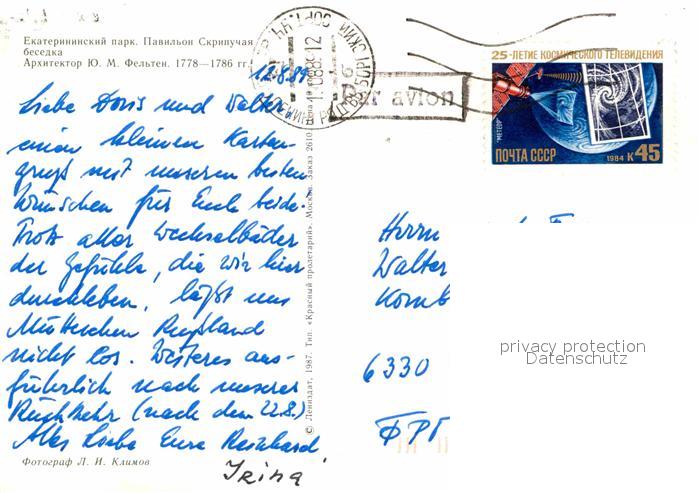 Екатерининский парк. Павильон Скрипучая
беседка
Архитектор Ю. М. Фельтен. 1778—1786 гг.
12.8.89
Liebe Doris und Walter
einen kleinen Karten-
gruß mit unseren besten
Wünschen für Euch beide.
Trotz aller Wechselbäder
der Gefühle, die wir hier
durchleben, läßt uns
Mütterchen Rußland
nicht los. Weiteres aus-
führlich nach unserer
Rückkehr (nach dem 22.8.)
Alles Liebe Eure Reinhard
Irina
Фотограф Л. И. Климов
© Лениздат, 1987. Тип. «Красный пролетарий». Москва. Заказ 2610.
Par avion
25-ЛЕТИЕ КОСМИЧЕСКОГО ТЕЛЕВИДЕНИЯ
"МЕТЕОР"
ПОЧТА СССР 1984 К 45
Herrn
Walter
Komb
6330
ФРГ
privacy protection
Datenschutz